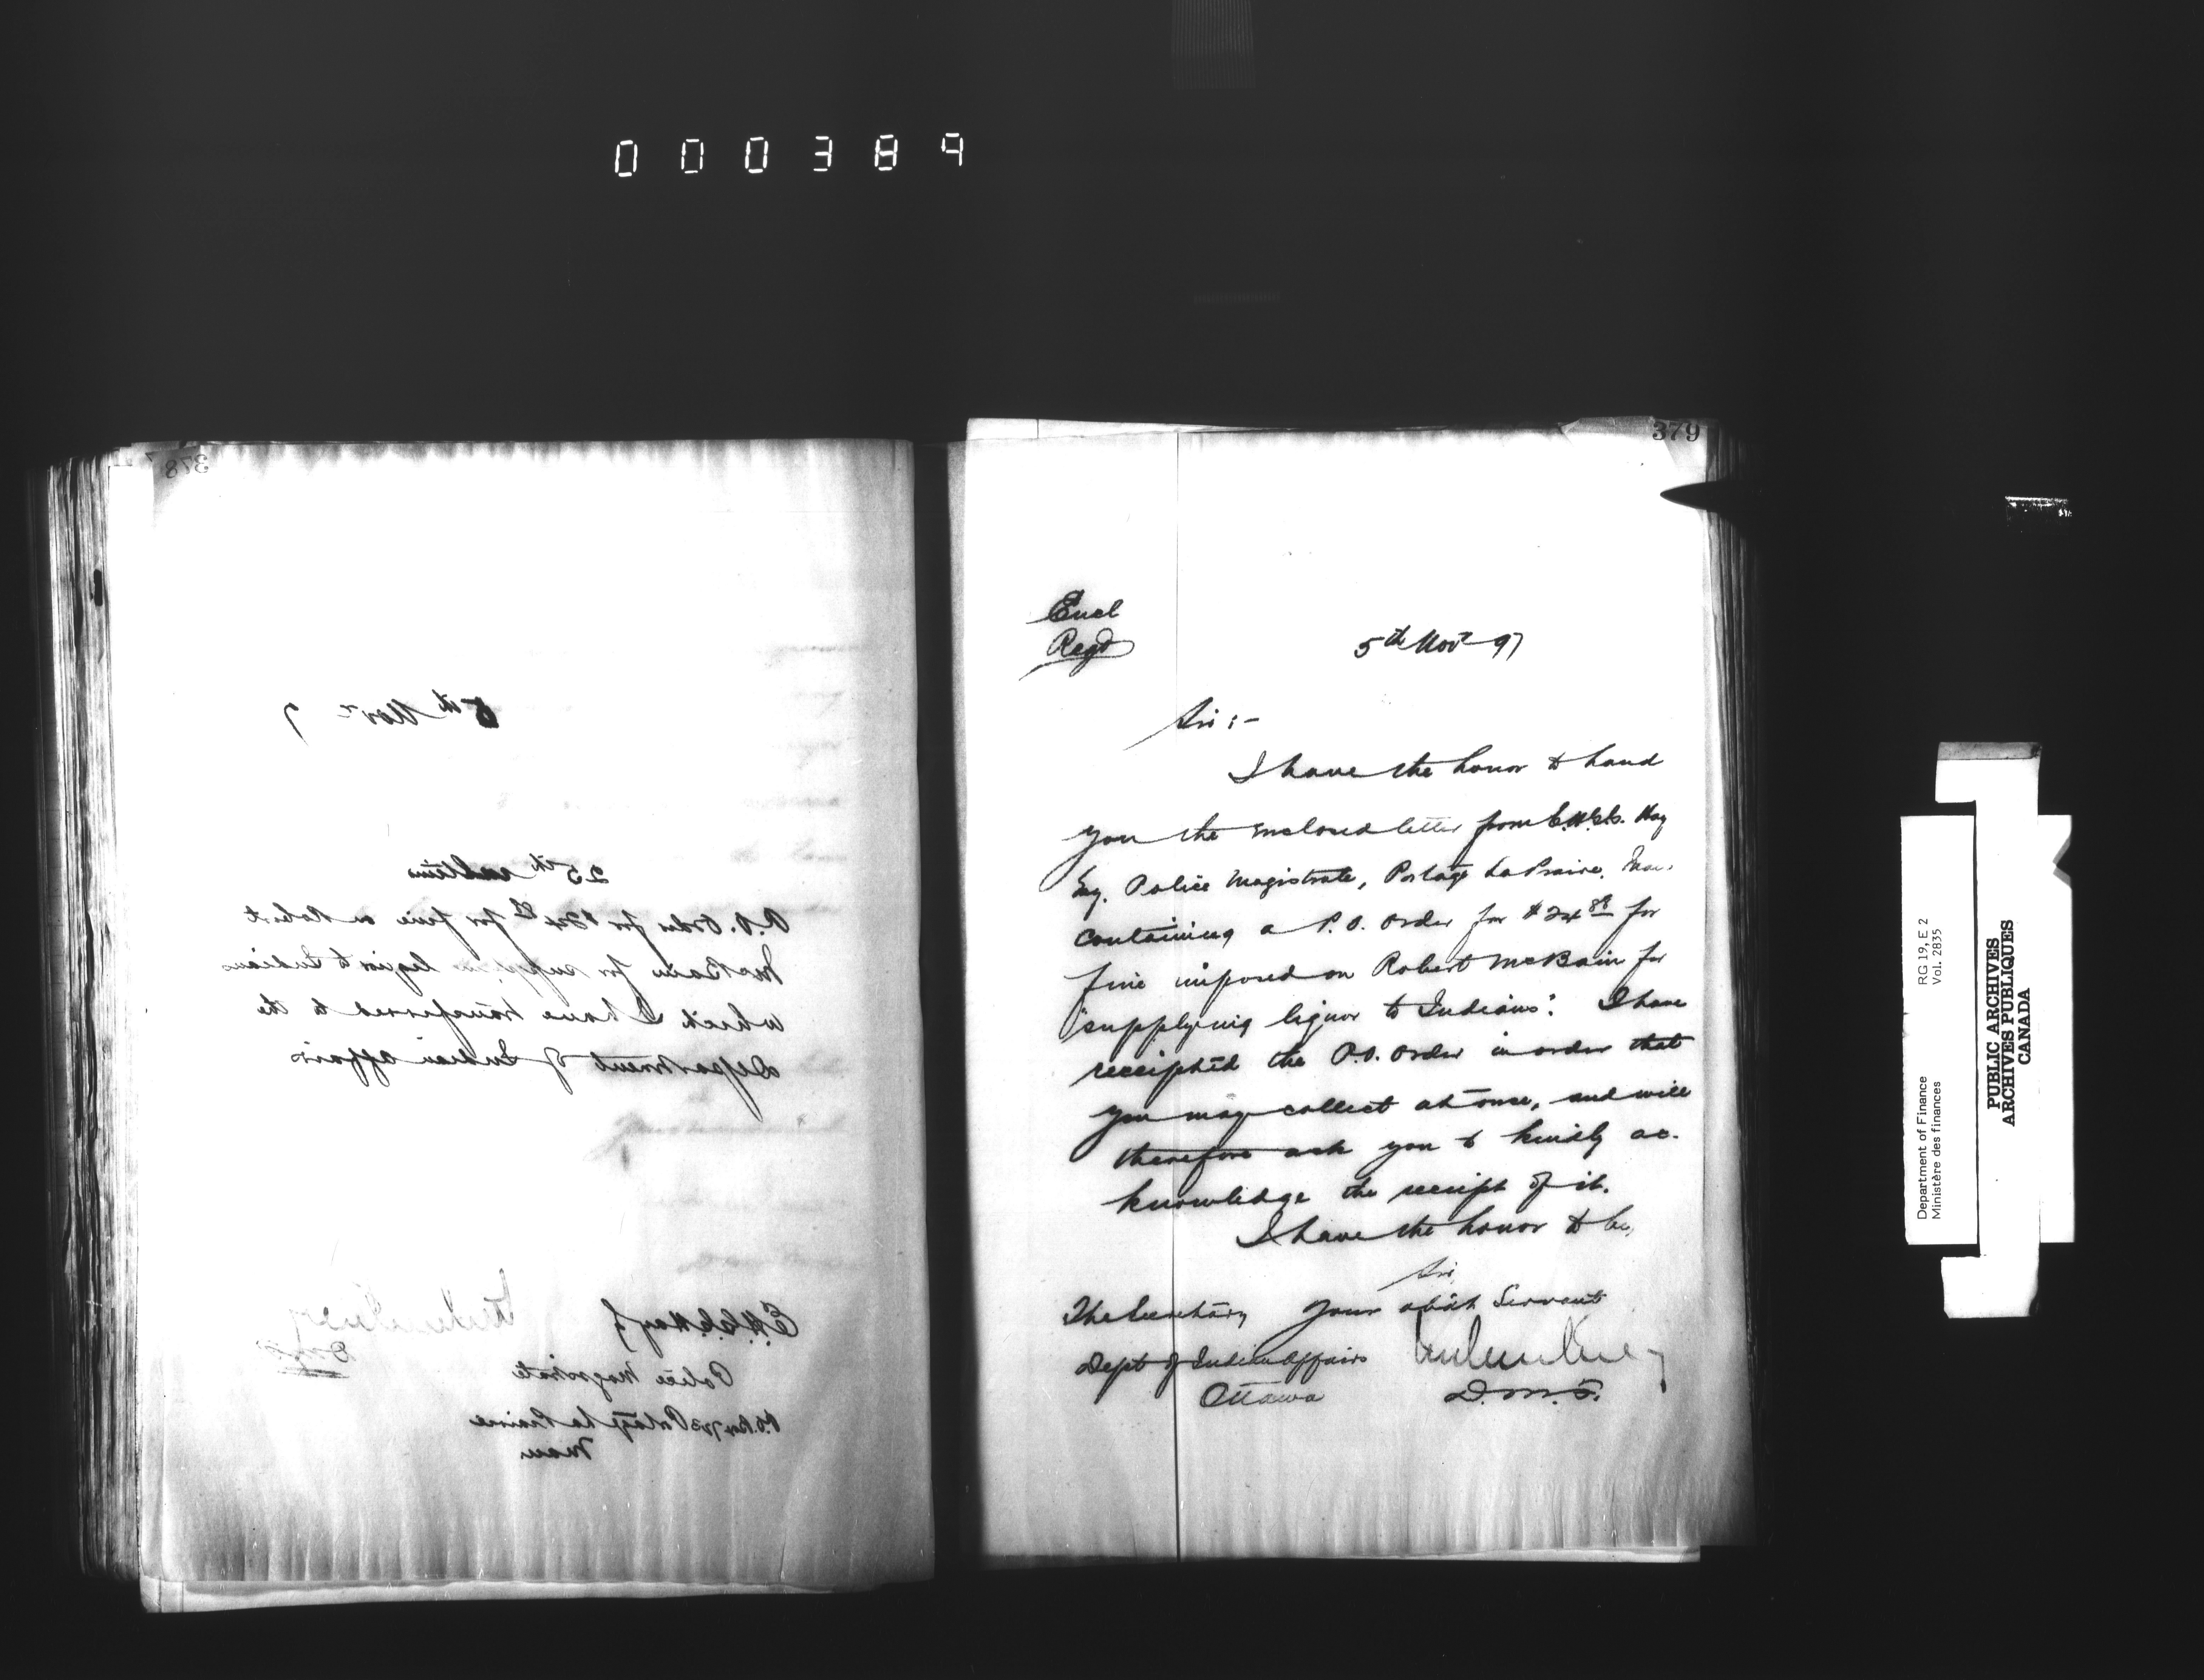 000389
378
5th Nov 7
25th ultimo
P.O. Order for $24 for fine on Robert
McBain for supplying liquor to Indians
which I have transferred to the
Department of Indian Affairs
E.H.G.G. Hay
Police Magistrate
P.O. Box 723 Portage La Prairie
Man
379
Encl
Regd
5th Novr 97
Sir :-
I have the honor to hand
you the enclosed letter from E.H.G.G. Hay
Esq. Police Magistrate, Portage La Prairie, Man.
containing a P.O. Order for $24 88 for
fine imposed on Robert McBain for
"supplying liquor to Indians". I have
receipted the P.O. Order in order that
you may collect at once, and will
therefore ask you to kindly ac-
knowledge the receipt of it.
I have the honor to be,
Sir,
The Secretary Your obdt Servant
Dept of Indian Affairs
Ottawa
Department of Finance RG 19, E 2
Ministère des finances Vol. 2835
PUBLIC ARCHIVES
ARCHIVES PUBLIQUES
CANADA